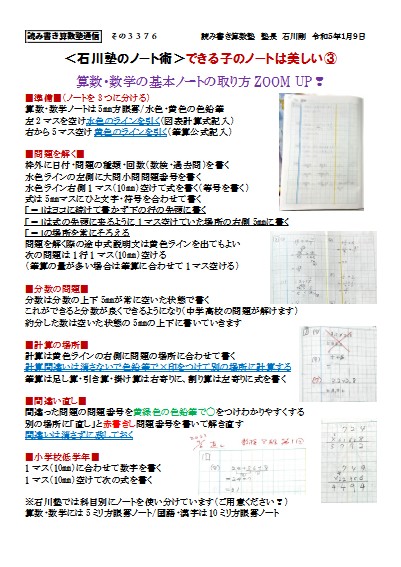 読み書き算数塾通信 その３３７６ 読み書き算数塾 塾長 石川剛 令和5年1月9日
＜石川塾のノート術＞できる子のノートは美しい③
算数・数学の基本ノートの取り方 ZOOM UP❢
■準備■(ノートを３つに分ける)
算数・数学ノートは5mm方眼罫/水色・黄色の色鉛筆
左２マスを空け水色のラインを引く(図表計算式記入)
右から５マス空け黄色のラインを引く(筆算公式記入)
■問題を解く■
枠外に日付・問題の種類・回数(数検・過去問)を書く
水色ラインの左側に大問小問問題番号を書く
水色ライン右側１マス(10mm)空けて式を書く(等号を書く)
式は5mmマスにひと文字・符号を合わせて書く
「＝」はヨコに続けて書かず下の行の先頭に書く
「＝」は式の先頭に来るように１マス空けていた場所の右側5mmに書く
「＝」の場所を常にそろえる
問題を解く際の途中式説明文は黄色ラインを出てもよい
次の問題は１行１マス(10mm)空ける
（筆算の量が多い場合は筆算に合わせて１マス空ける）
■分数の問題■
分数は分数の上下5mmが常に空いた状態で書く
これができると分数が良くできるようになり(中学高校の問題が解けます)
約分した数は空いた状態の5mmの上下に書いていきます
■計算の場所■
計算は黄色ラインの右側に問題の場所に合わせて書く
計算間違いは消さないで色鉛筆で×印をつけて別の場所に計算する
筆算は足し算・引き算・掛け算は右寄りに、割り算は左寄りに式を書く
■間違い直し■
間違った問題の問題番号を黄緑色の色鉛筆で○をつけわかりやすくする
別の場所に「直し」と赤書きし問題番号を書いて解き直す
間違いは消さずに残しておく
■小学校低学年■
１マス(10mm)に合わせて数字を書く
１マス(10mm)空けて次の式を書く
※石川塾では科目別にノートを使い分けています(ご用意ください❢)
算数・数学には５ミリ方眼罫ノート/国語・漢字は10ミリ方眼罫ノート